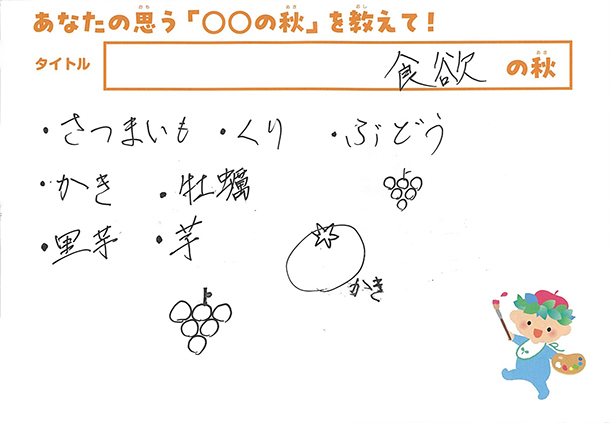 あなたの思う「〇〇の秋」を教えて！
タイトル 食欲 の秋
・さつまいも ・くり ・ぶどう
・かき ・牡蠣
・里芋 ・芋
かき